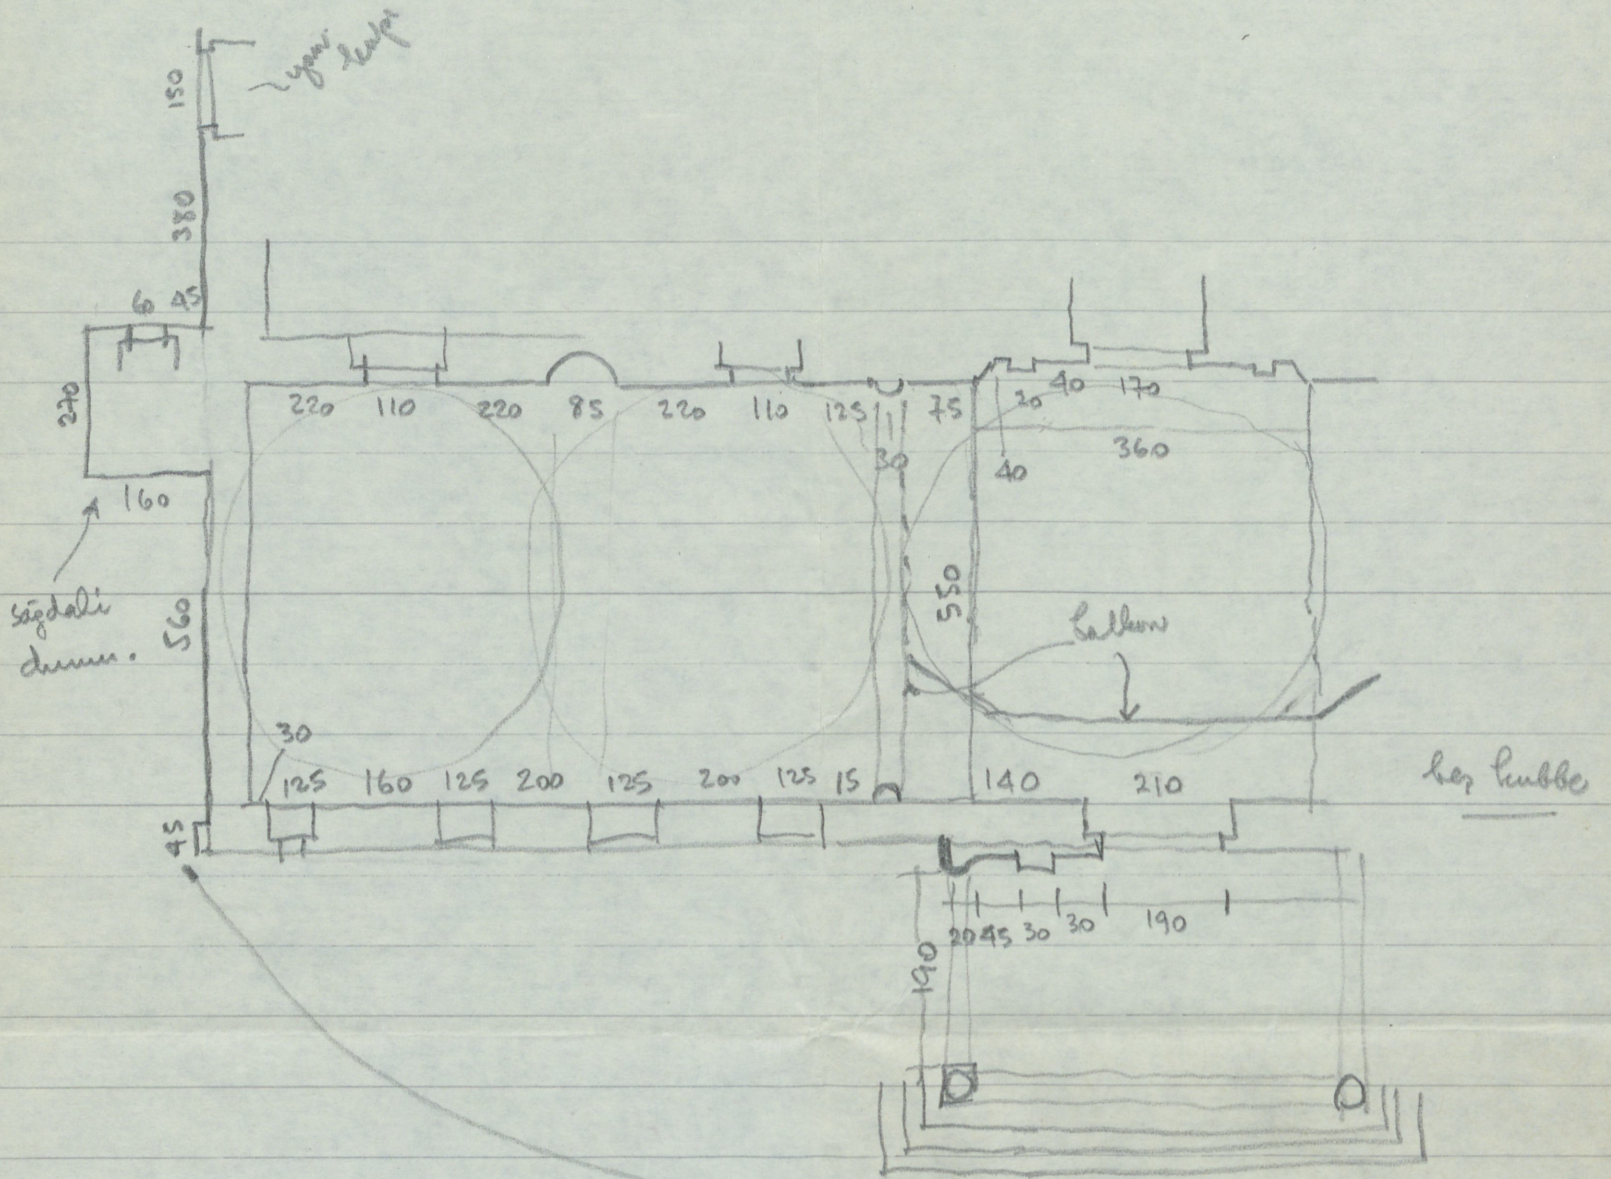 yan
kapı
150
380
6 45
270
160
sağdaki
durum.
560
45
220 110 220 85 220 110 125 75 20 40 170
30
40
360
550
balkon
30
125 160 125 200 125 200 125 15 140 210
beş kubbe
20 45 30 30 190
190